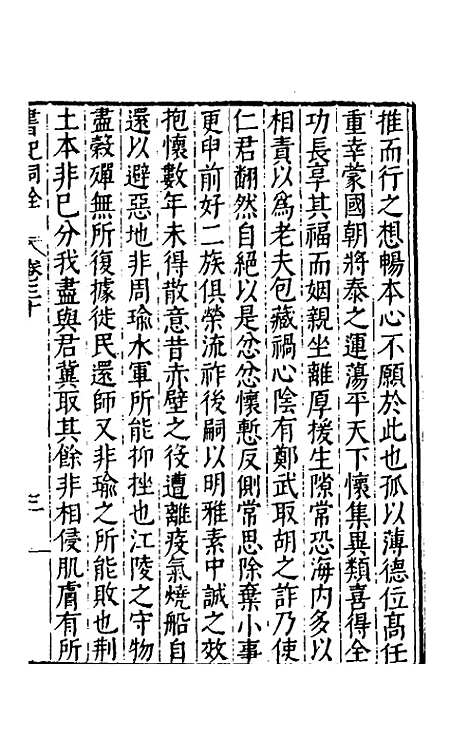 推而行之想暢本心不願於此也孤以薄德位髙任
重幸蒙國朝將泰之運蕩平天下懷集異類喜得全
功長享其福而姻親坐離厚援生隙常恐海内多以
相責以爲老夫包藏禍心陰有鄭武取胡之詐乃使
仁君翻然自絕以是忿忿懷慙反側常思除棄小事
更申前好二族俱榮流祚後嗣以明雅素中誠之效
抱懷數年未得散意昔赤壁之役遭離疫氣燒船自
還以避惡地非周瑜水軍所能抑挫也江陵之守物
盡穀殫無所復據徙民還師又非瑜之所能敗也荆
土本非已分我盡與君冀取其餘非相侵肌膚有所
書記洞詮 卷三十 三